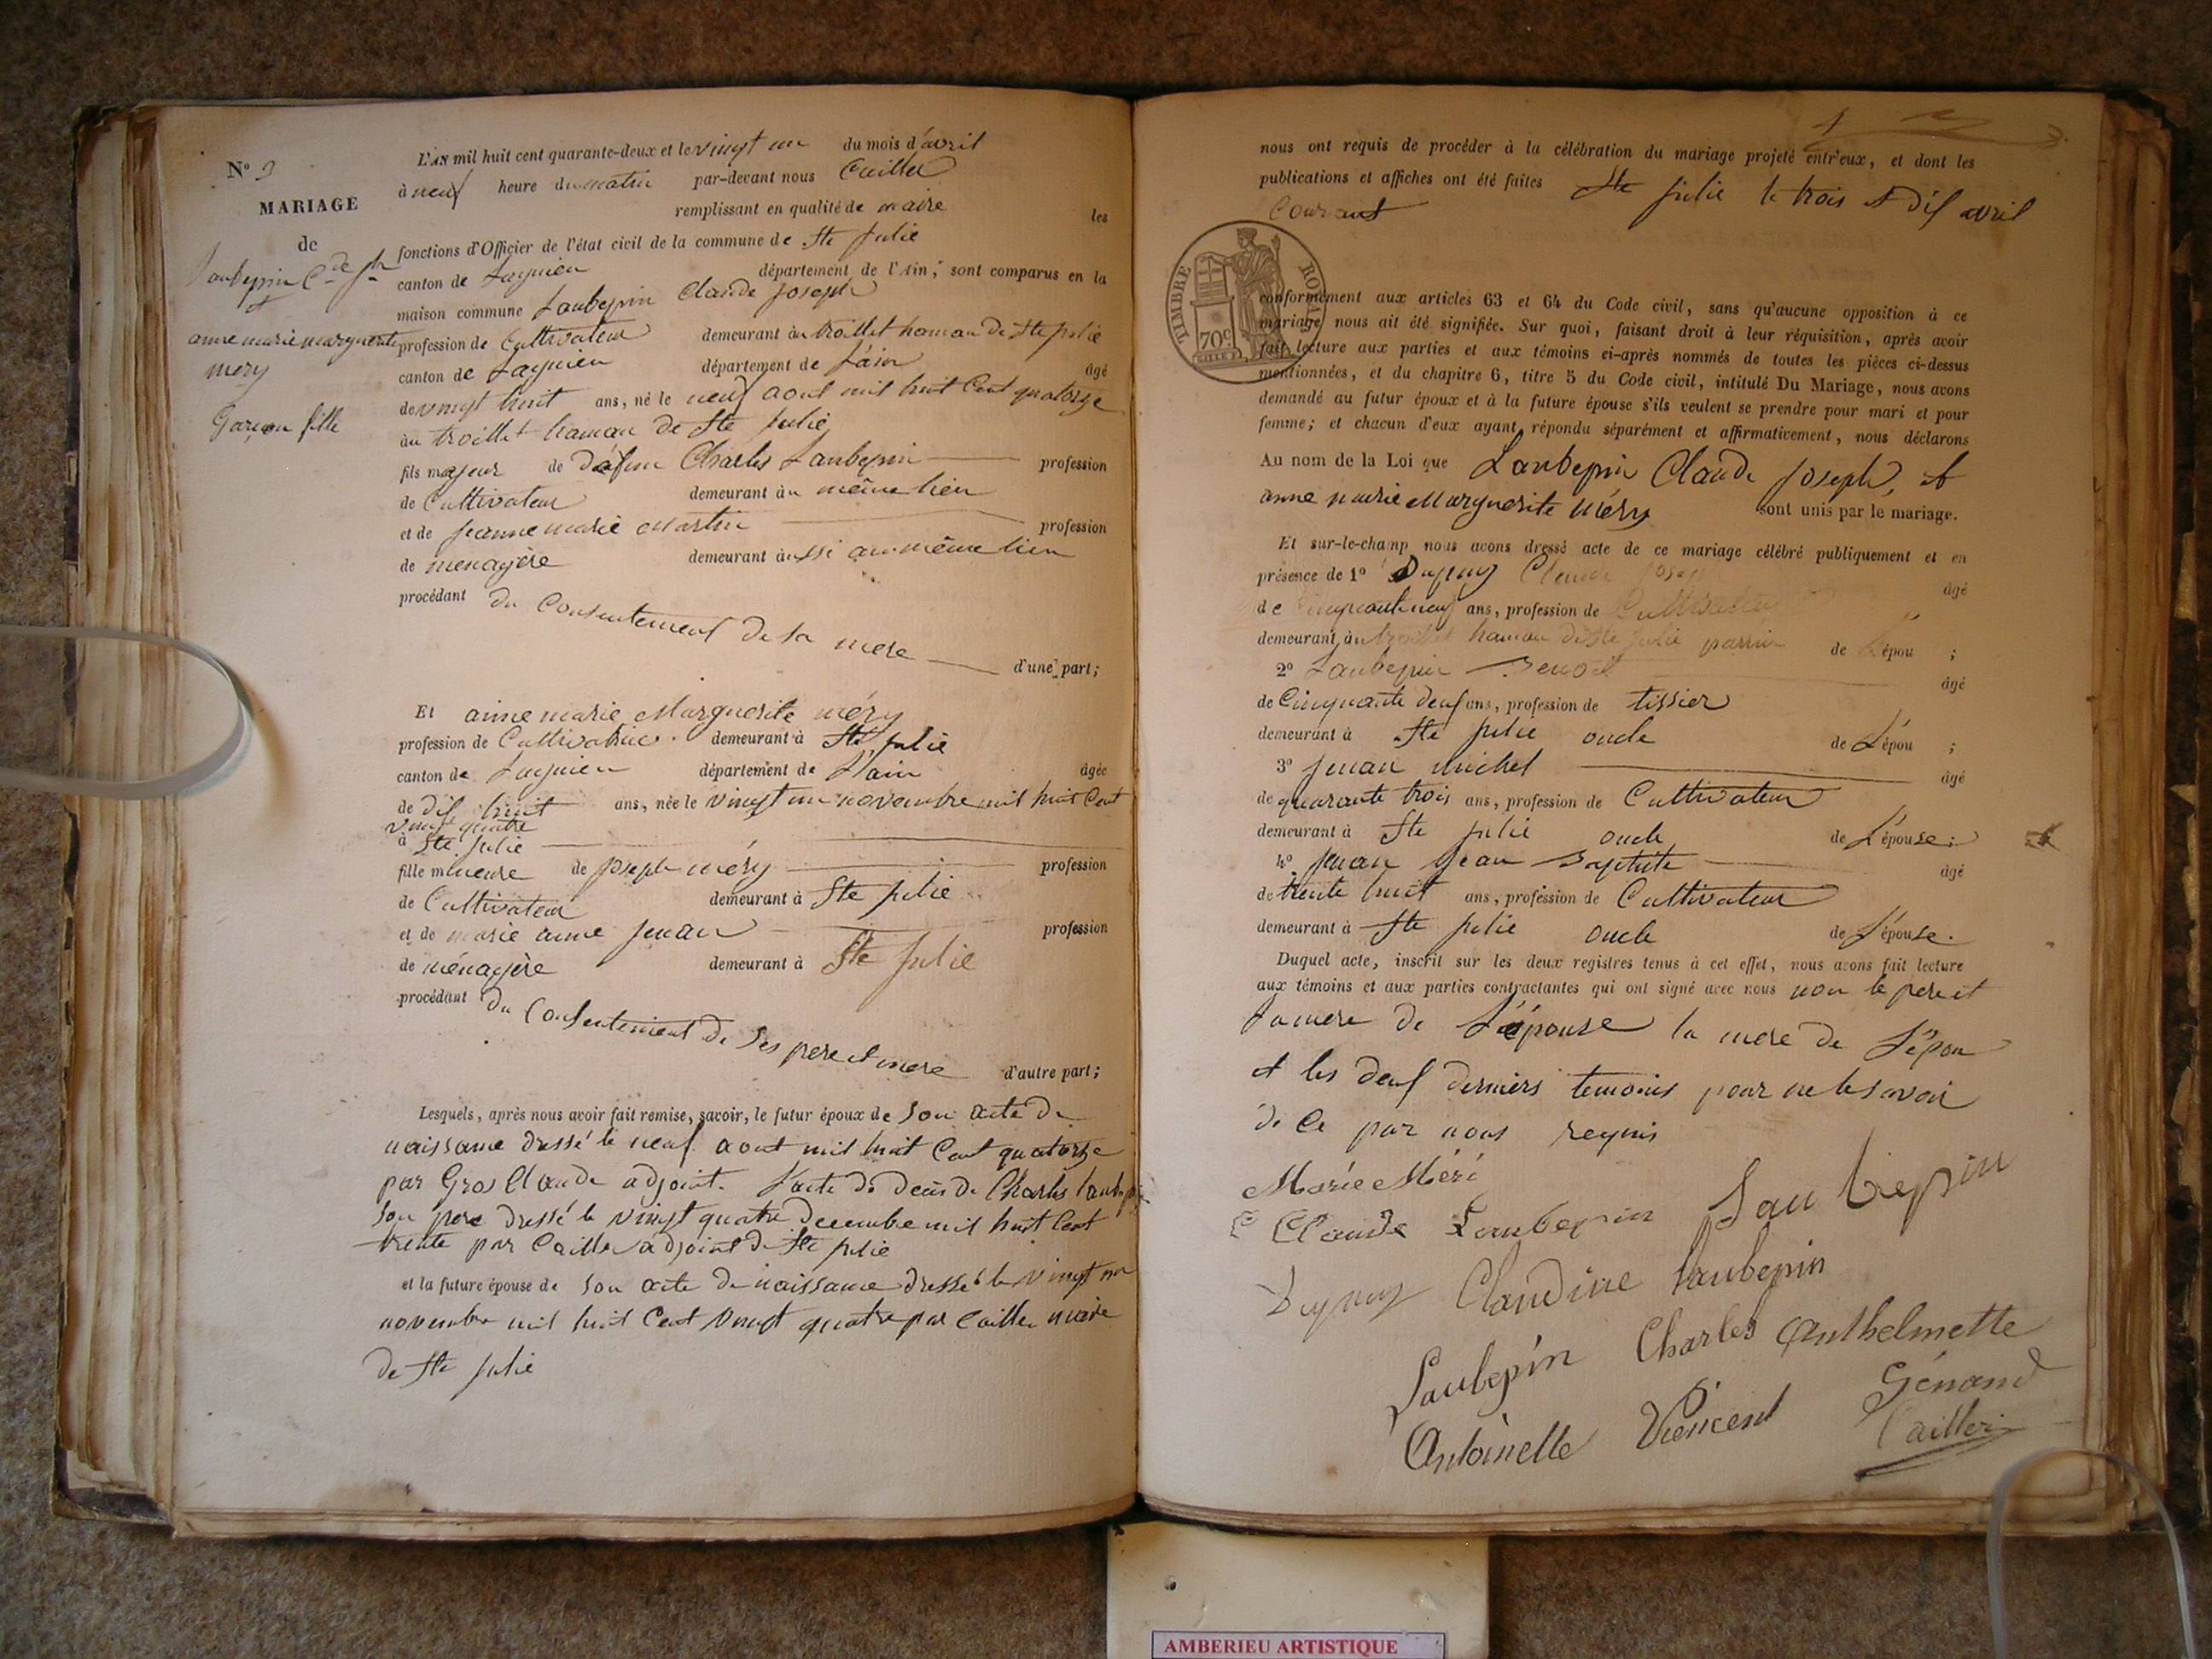 N° 3
MARIAGE
de
Laubepin C.de J.ph
et
anne marie marguerite
mery
Garçon fille
L'AN mil huit cent quarante-deux et le vingt un du mois d'avril
à neuf heure du matin par-devant nous Cailler
remplissant en qualité de maire les
fonctions d'Officier de l'état civil de la commune de Ste Julie
canton de Lagnieu département de l'Ain; sont comparus en la
maison commune Laubepin Claude Joseph
profession de Cultivateur demeurant au trollet hamau de Ste julie
canton de Lagnieu département de L'ain âgé
de vingt huit ans, né le neuf aout mil huit Cent quatorze
au trollet hamau de Ste Julie
fils majeur de défun Charles Laubepin profession
de Cultivateur demeurant au même lieu
et de jeanne marie Martin profession
de menagère demeurant aussi au même lieu
procédant du Consentement de sa mere d'une part;
Et anne marie Marguerite méry
profession de Cultivatrice demeurant à Ste julie
canton de Lagnieu département de L'ain âgée
de dix huit ans, née le vingt un novembre mil huit Cent
vingt quatre
à Ste Julie
fille mineure de joseph méry profession
de Cultivateur demeurant à Ste julie
et de marie anne Juuan profession
de ménagère demeurant à Ste Julie
procédant du Consentement de Ses pere et mere d'autre part;
Lesquels, après nous avoir fait remise, savoir, le futur époux de Son acte de
naissance dressé le neuf aout mil huit Cent quatorze
par Gros Claude adjoint. L'acte de decès de Charles Laubepin
Son pere dressé le vingt quatre decembre mil huit Cent
trente par Cailler adjoint de Ste julie
et la future épouse de Son acte de naissance dressé le vingt un
novembre mil huit Cent vingt quatre par Cailler maire
de Ste julie
nous ont requis de procéder à la célébration du mariage projeté entr'eux, et dont les
publications et affiches ont été faites Ste julie le trois et dix avril
Courant
TIMBRE ROYAL
70c
conformément aux articles 63 et 64 du Code civil, sans qu'aucune opposition à ce
mariage nous ait été signifiée. Sur quoi, faisant droit à leur réquisition, après avoir
fait lecture aux parties et aux témoins ci-après nommés de toutes les pièces ci-dessus
mentionnées, et du chapitre 6, titre 5 du Code civil, intitulé Du Mariage, nous avons
demandé au futur époux et à la future épouse s'ils veulent se prendre pour mari et pour
femme; et chacun d'eux ayant répondu séparément et affirmativement, nous déclarons
Au nom de la Loi que Laubepin Claude joseph, et
anne marie Marguerite Méry sont unis par le mariage.
Et sur-le-champ nous avons dressé acte de ce mariage célébré publiquement et en
présence de 1° Dupuy Claude Josep âgé
de Cinquante neuf ans, profession de Cultivateur
demeurant au trollet hamau de Ste Julie parrin de L'épou ;
2° Laubepin Benoit âgé
de Cinquante deux ans, profession de tissier
demeurant à Ste julie oncle de L'épou ;
3° Juuan michel âgé
de quarante trois ans, profession de Cultivateur
demeurant à Ste julie oncle de L'épouse;
4° Juuan Jean Baptiste âgé
de trente huit ans, profession de Cultivateur
demeurant à Ste julie oncle de L'épouse.
Duquel acte, inscrit sur les deux registres tenus à cet effet, nous avons fait lecture
aux témoins et aux parties contractantes qui ont signé avec nous non le pere et
La mere de L'épouse la mere de L'épou
et les deux derniers temoins pour ne le savoir
de Ce par nous requis
Marie Méri
Claude Laubepin Laubepin
Dupuy Claudine Laubepin
Laubepin Charles Anthelmette
Antoinelle Viencent Génand
Cailler
AMBERIEU ARTISTIQUE